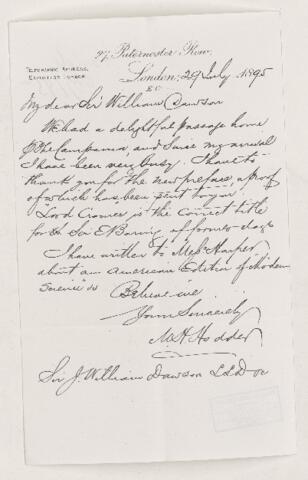 27, Paternoster Row,
TELEGRAPHIC ADDRESS,
EXPOSITOR LONDON.
London, 29 July 1895
E.C.
My dear Sir William Dawson
We had a delightful passage home
Campania and since my arrival
I have been very busy. I have to
thank you for the new preface, a proof
of which has been sent to you.
"Lord Cromer is the correct title
for Sir E Baring of former days
I have written to Messrs Harper
about an American Edition of "Modern
Science" &c
Believe me
Yours Sincerely
M H Hodder
Sir J. William Dawson LLD &c